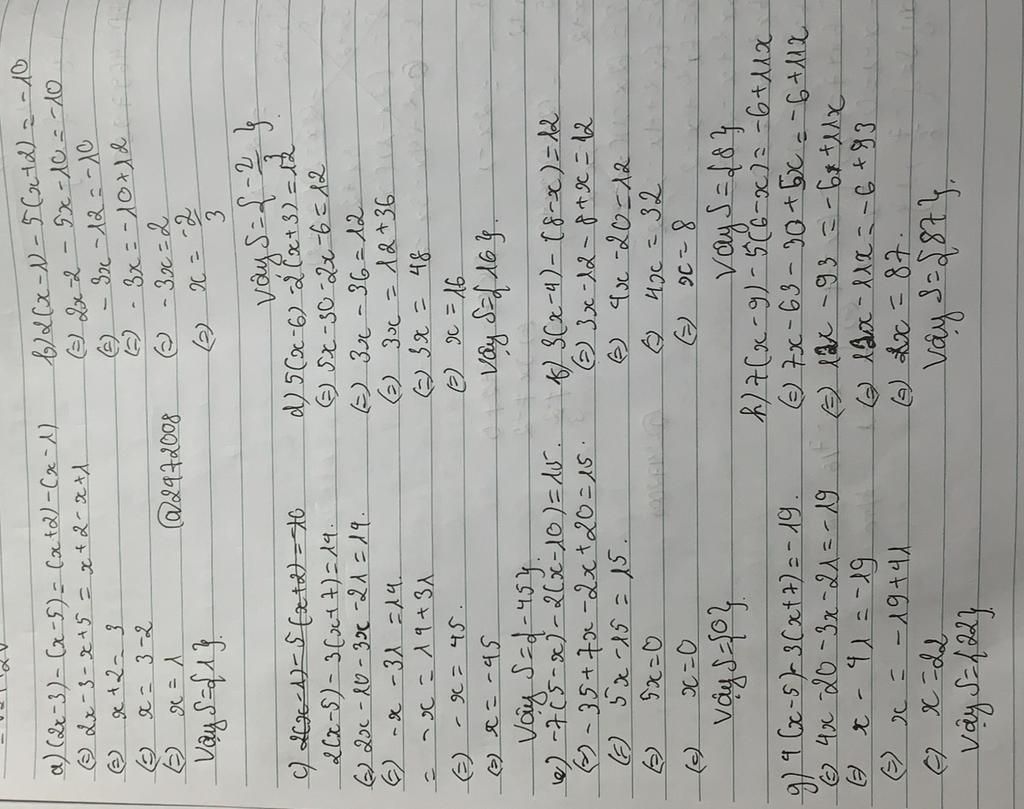 a) (2x-3) - (x-5) = (x+2) - (x-1)
(=) 2x-3-x+5 = x+2-x+1
(=) x+2=3
(=) x=3-2
(=) x=1
@2472008
Vậy S={1}.
b) 2(x-1) - 5(x+2) = -10
(=) 2x-2-5x-10=-10
(=) -3x-12=-10
(=) -3x=-10+12
(=) -3x=2
(=) x=-2/3
Vậy S={-2/3}.
c) 2(x-1)-5(x+2)=-10
2(x-5) - 3(x+7)=14.
(=) 2x-10-3x-21=14.
(=) -x-31=14.
= -x=14+31
(=) -x=45.
(=) x=-45
Vậy S={-45}.
d) 5(x-6)-2(x+3)=12
(=) 5x-30-2x-6=12
(=) 3x-36=12
(=) 3x=12+36
(=) 3x=48
(=) x=16
Vậy S={16}.
e) -7(5-x)-2(x-10)=15.
(=) -35+7x-2x+20=15.
(=) 5x-15=15.
(=) 5x=0
(=) x=0
Vậy S={0}.
f) 3(x-4)-(8-x)=12
(=) 3x-12-8+x=12
(=) 4x-20=12
(=) 4x=32
(=) x=8
Vậy S={8}
g) 4(x-5)-3(x+7)=-19.
(=) 4x-20-3x-21=-19
(=) x-41=-19
(=) x=-19+41
(=) x=22
Vậy S={22}.
h) 7(x-9)-5(6-x)=-6+11x
(=) 7x-63-30+5x=-6+11x
(=) 12x-93=-6+11x
(=) 12x-11x=-6+93
(=) x=87.
Vậy S={87}.